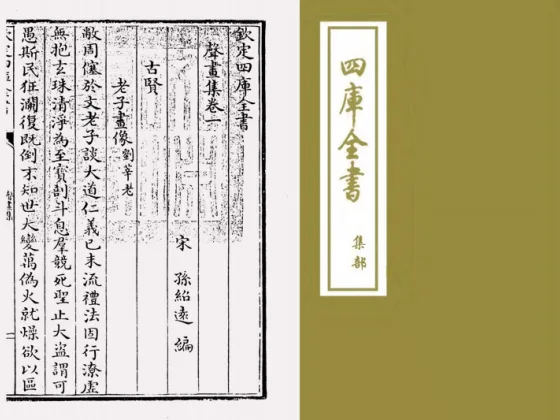 欽定四庫全書
聲畫集卷一
宋 孫紹遠 編
古賢
老子畫像 劉莘老
敝周僿於文老子談大道仁義已末流禮法固行潦虛
無抱玄珠清淨為至寶剖斗息羣競死聖止大盜謂可
愚斯民狂瀾復既倒未知世大變萬偽火就燥欲以區
四庫全書
集部